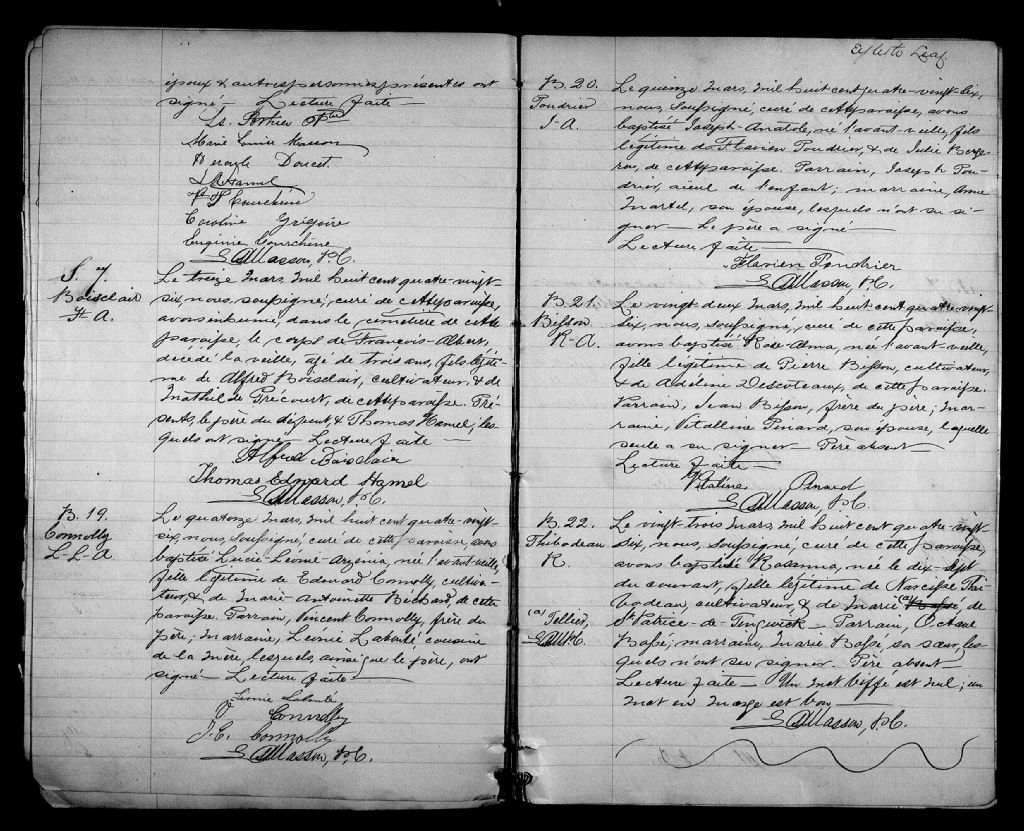 époux & autres personnes présentes ont
signé — Lecture faite —
Marie Louise Masson
Doucet
Hamel
Courchène
Caroline Grégoire
Eugénie Courchène
Masson, P.C.
S. 7.
Boisclair
F. A.
Le treize Mars, Mil huit cent quatre-vingt
six, nous, soussigné, curé de cette paroisse,
avons inhumé, dans le cimetière de cette
paroisse, le corps de François-Albert,
décédé la veille, âgé de trois ans, fils légiti-
me de Alfred Boisclair, cultivateur, & de
Mathilde Précourt, de cette paroisse. Pré-
sents, le père du défunt, & Thomas Hamel; les-
quels ont signé — Lecture faite —
Alfred Boisclair
Thomas Edward Hamel
Masson, P.C.
B. 19.
Connolly
L-L-A.
Le quatorze Mars, Mil huit cent quatre-vingt-
six, nous, soussigné, curé de cette paroisse, avons
baptisé Lucie-Léonie-Arzénia, née l'avant-veille,
fille légitime de Edouard Connolly, cultiva-
teur, & de Marie Antoinette Béchard, de cette
paroisse. Parrain, Vincent Connolly, frère du
père; Marraine, Léonie Labonté, cousine
de la Mère lesquels, ainsi que le père, ont
signé — Lecture faite —
Léonie Labonté
Connolly
J. E. Connolly
Masson, P.C.
Leaf.
B. 20.
Poudrier
J-A.
Le quinze Mars, Mil huit cent quatre-vingt-six,
nous, soussigné, curé de cette paroisse, avons
baptisé Joseph-Anatole, né l'avant-veille, fils
légitime de Flavien Poudrier, & de Julie Berge-
ron, de cette paroisse. Parrain, Joseph Pou-
drier, aïeul de l'enfant; marraine, Anne
Martel, son épouse, lesquels n'ont su si-
gner — Le père a signé —
Lecture faite —
Flavien Poudrier
Masson, P.C.
B. 21.
Bisson
R-A.
Le vingt deux Mars, Mil huit cent quatre-vingt-
six, nous, soussigné, curé de cette paroisse,
avons baptisé Rose-Alma, née l'avant-veille,
fille légitime de Pierre Bisson, cultivateur,
& de Adeline Descoteaux, de cette paroisse.
Parrain, Jean Bisson, frère du père; Mar-
raine, Vitalline Pinard, son épouse, laquelle
seule a su signer — Père absent —
Lecture faite —
Vitaline Pinard
Masson, P.C.
B. 22.
Thibodeau
R.
Le vingt trois Mars, Mil huit cent quatre-vingt-
six, nous, soussigné, curé de cette paroisse,
avons baptisé Rosanna, née le dix-sept
du courant, fille légitime de Narcisse Thi-
bodeau, cultivateur, & de Marie (a) Bassé, de
St Patrice-de-Tingwick — Parrain, Octave
(a) Tellier,
Bassé; marraine, Marie Bassé sa sœur, les-
quels n'ont su signer. Père absent —
Lecture faite — Un mot biffé est nul; un
mot en marge est bon —
Masson, P.C.